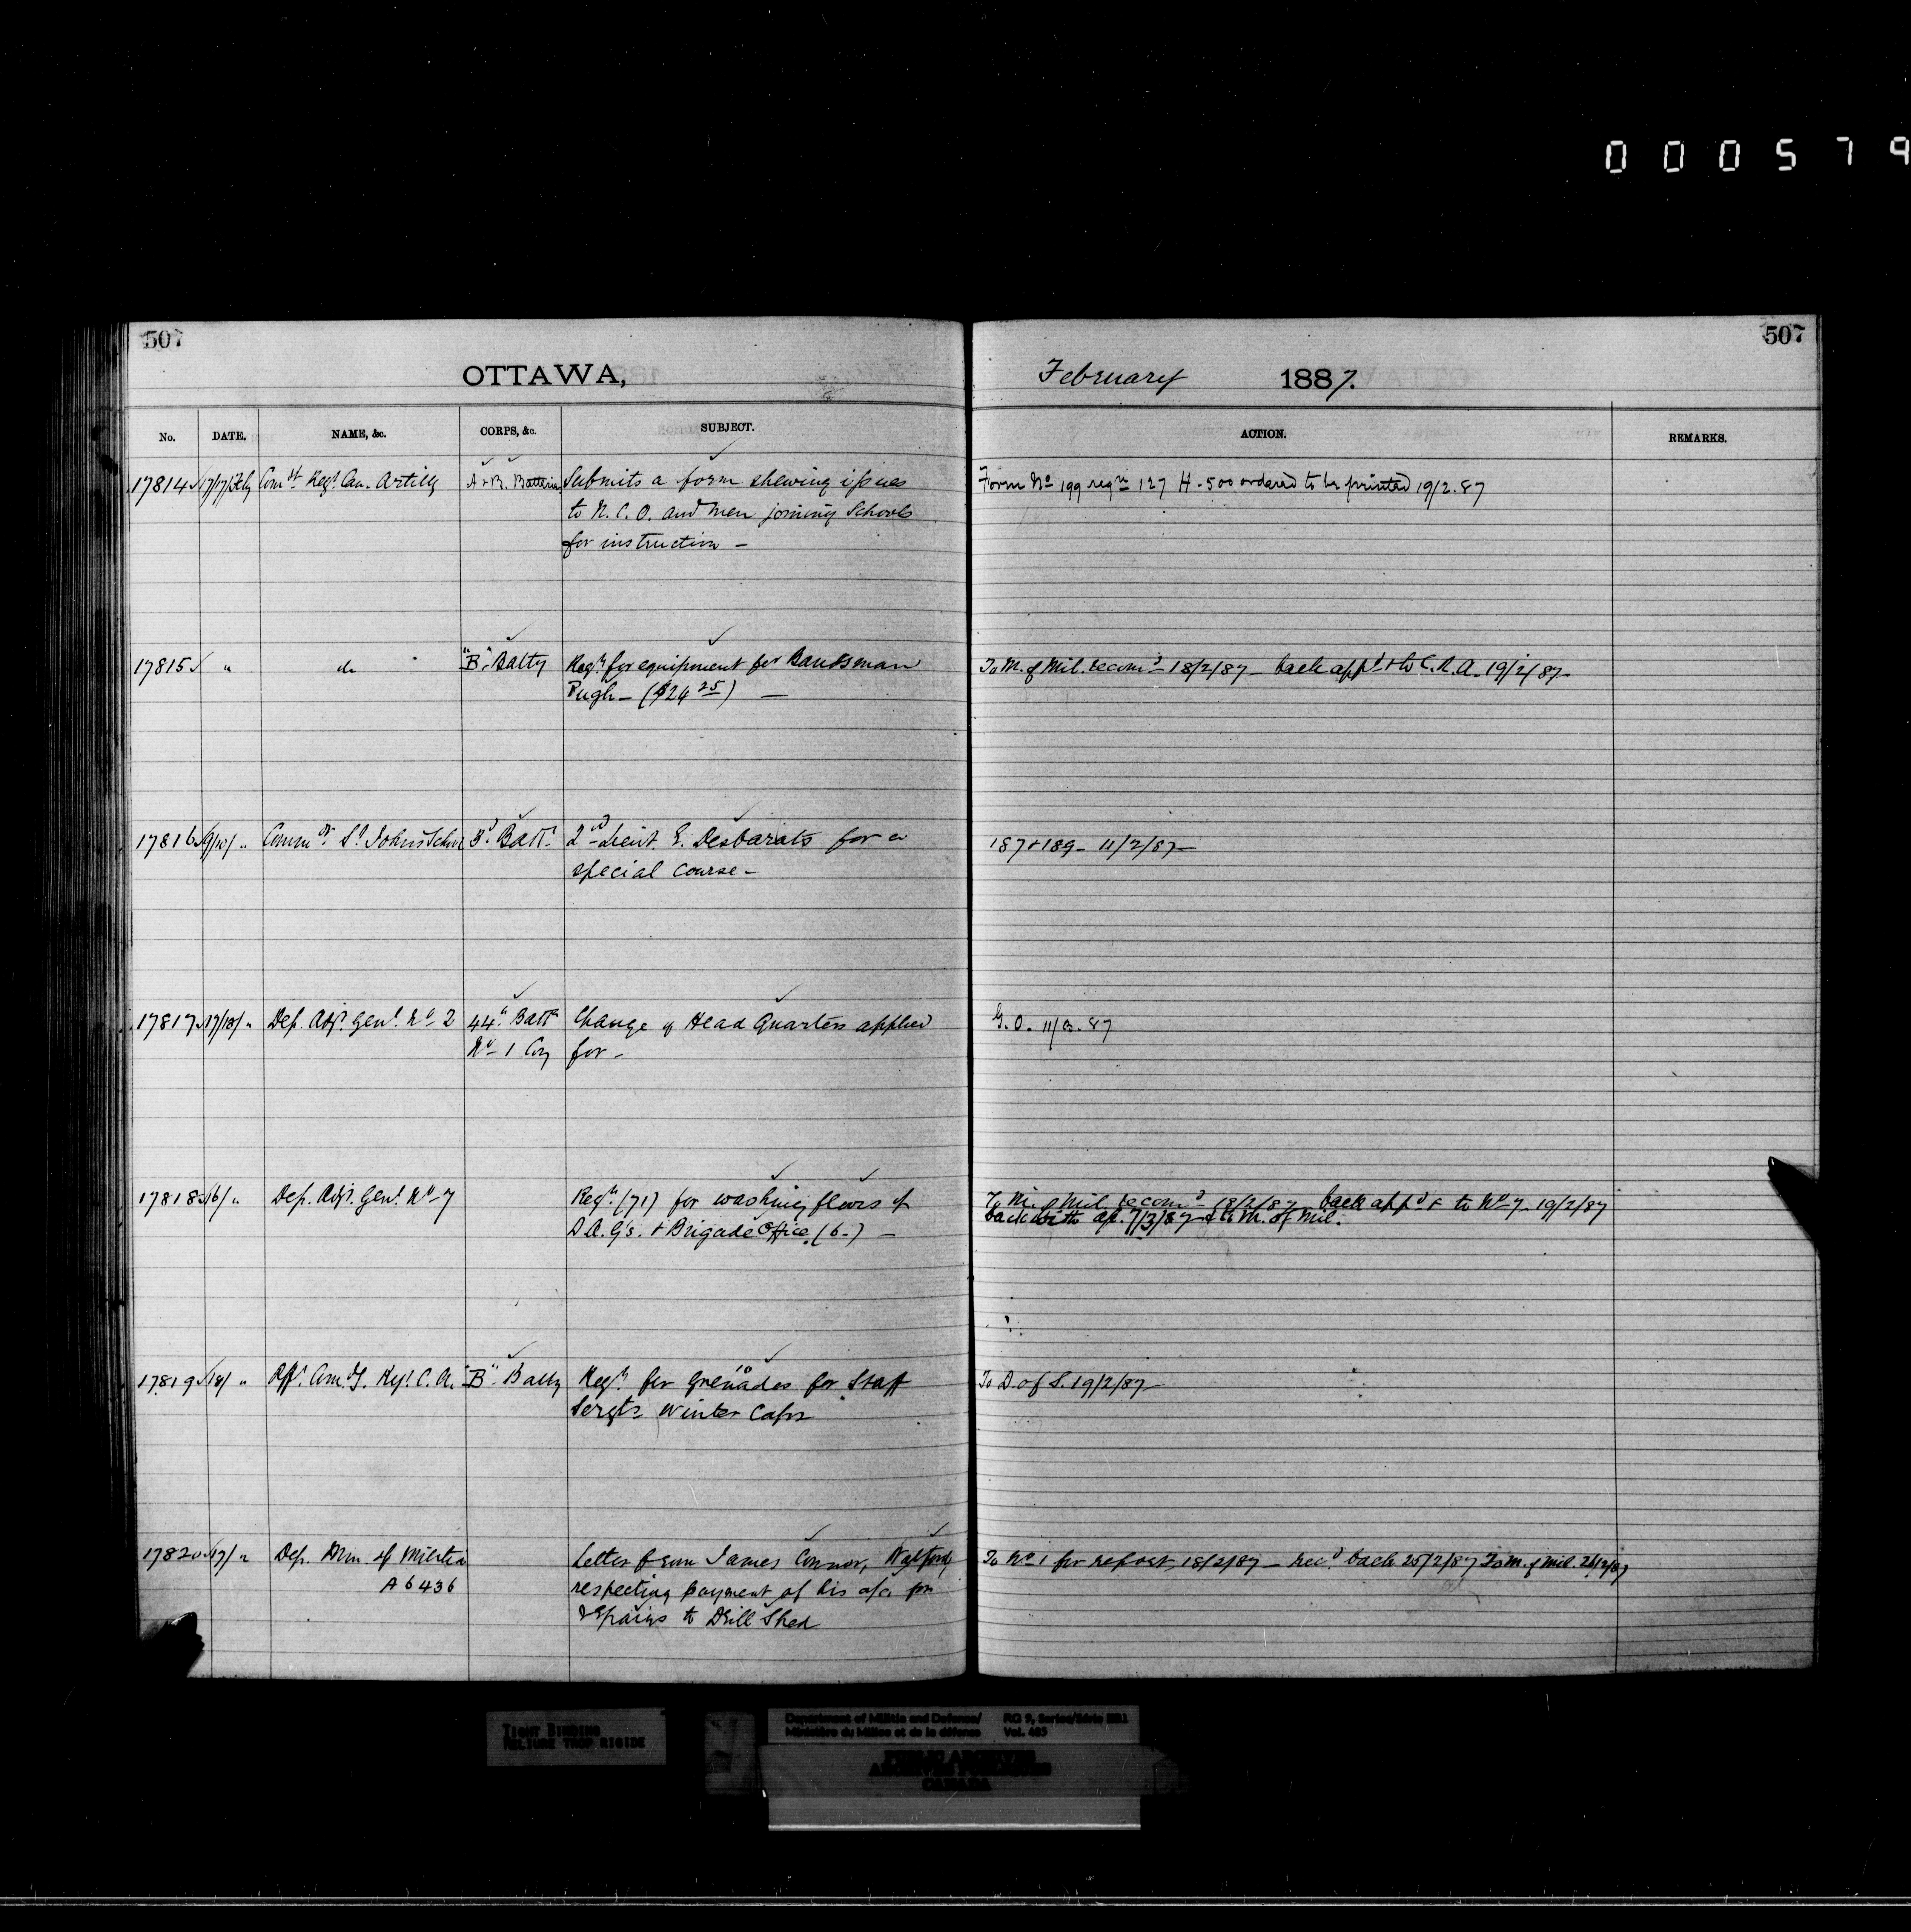 000579
507
507
OTTAWA,
February 1887.
No. DATE. NAME, &c. CORPS, &c. SUBJECT. ACTION. REMARKS.
17814 17/17/Feby Comdt Regt Can. Artilly A & B. Batteries Submits a form shewing issues Form No 199 reqn 127 H - 500 ordered to be printed 19/2.87
to N. C. O. and men joining Schools
for instruction -
17815 " do "B" Batty Reqn for equipment for Bandsman To M. of Mil. recomd 18/2/87 - back appd & to C.R.A. 19/2/87-
Pugh - ($24 25) -
17816 9/10/ " Commdt St Johns School Batt. 2nd Lieut. E. Desbarats for a 187 & 189 - 11/2/87-
special course -
17817 17/18/ " Dep. Adjt. Genl. No 2 44th Battn Change of Head Quarters applied G. O. 11/3.87
No 1 Coy for -
17818 16/ " Dep. Adjt. Genl. No 7 Reqn (71) for washing floors of To M. of Mil. recomd 18/2/87 back appd & to No 7 19/2/87
D.A.G's. & Brigade Office. (6-) - back with 7/3/87 & to M. of Mil.
17819 18/ " Offr Comdg. Regt. C. A. "B" Batty Reqn for 10 Grenades for Staff To D. of S. 19/2/87-
Sergts Winter Caps
17820 17/ " Dep. Min. of Militia Letter from James Connor, To No 1 for report, 18/2/87 - recd back 25/2/87 To M. of Mil. 26/2/87
A 6436 respecting payment of his a/c for
repairs to Drill Shed
TIGHT BINDING
RELIURE TROP RIGIDE
Department of Militia and Defence/ RG 9, Series/Série
Ministère du Milice et de la défense Vol. 465
PUBLIC ARCHIVES
ARCHIVES PUBLIQUES
CANADA